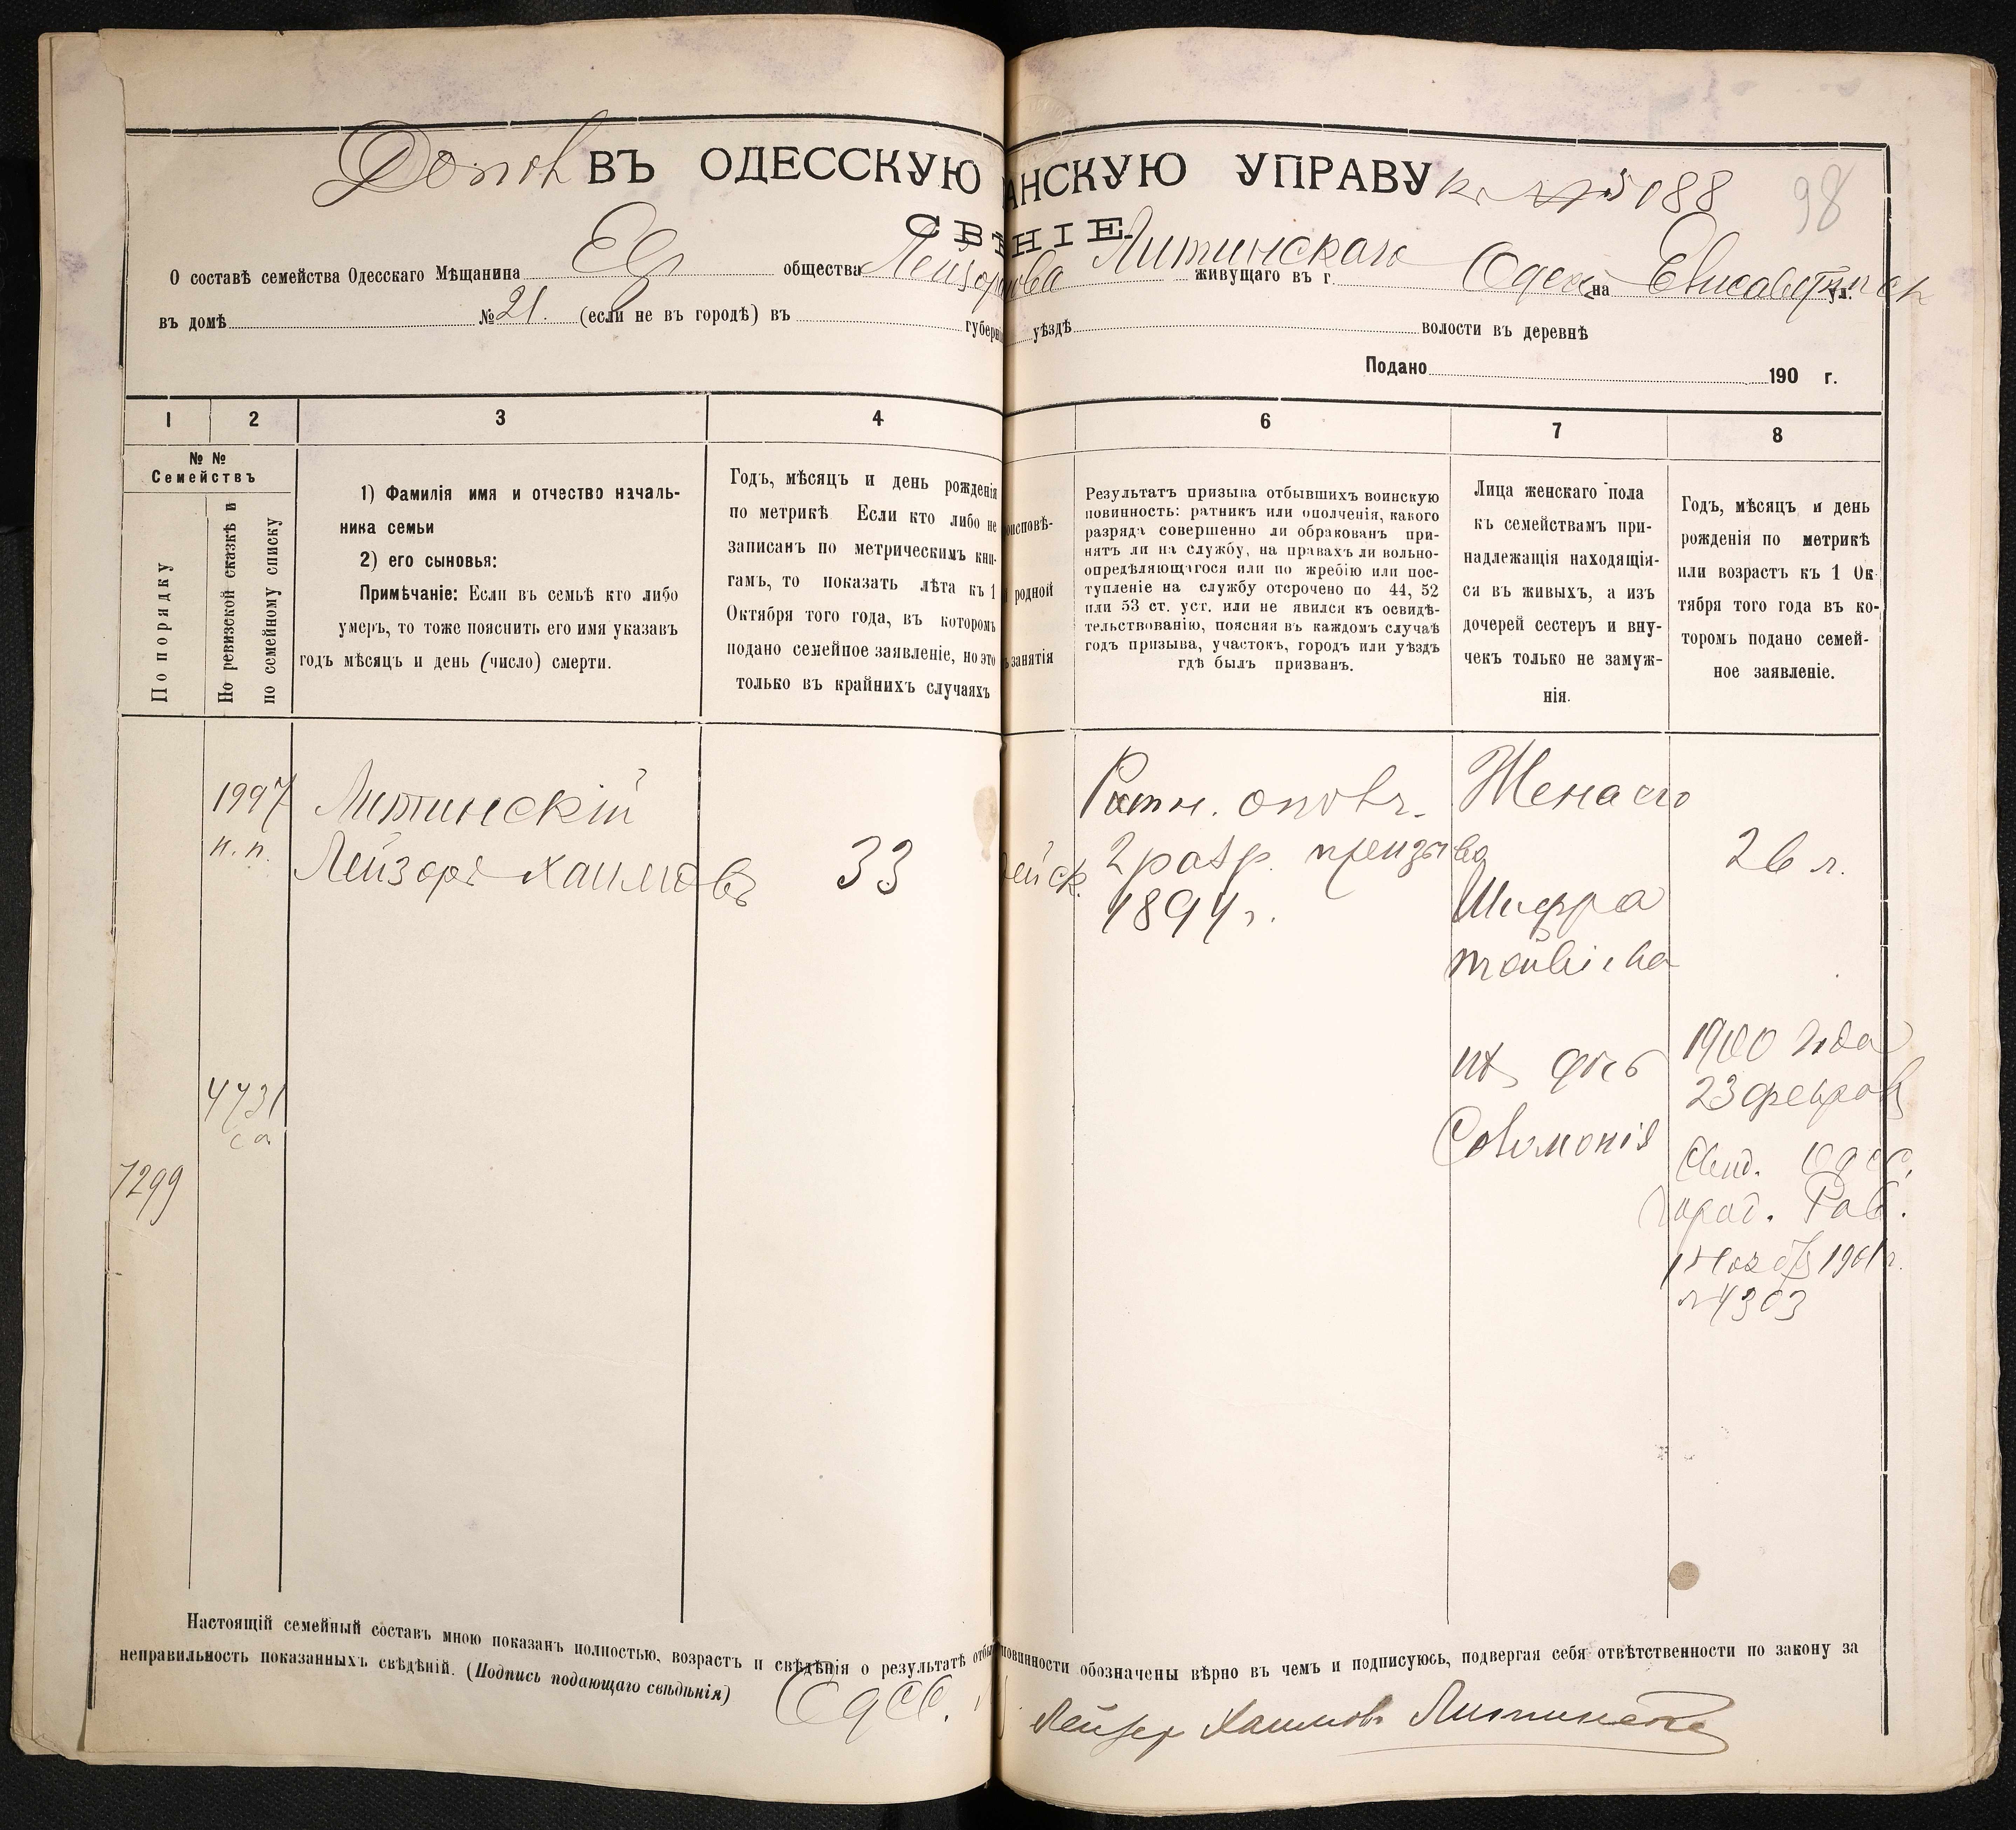 Допол ВЪ ОДЕССКУЮ АНСКУЮ УПРАВУ к № 5088
98
СВѢНІЕ
О составѣ семейства Одесскаго Мѣщанина общества Лейзора Хаимова Литинскаго живущаго въ г. Одессѣ на Елисаветинск ул.
въ домѣ № 21. (если не въ городѣ) въ губерні уѣздѣ волости въ деревнѣ
Подано 190 г.
1 2 3 4 6 7 8
№ №
Семействъ
По порядку
По ревизской сказкѣ и
по семейному списку
1) Фамилія имя и отчество началь-
ника семьи
2) его сыновья:
Примѣчаніе: Если въ семьѣ кто либо
умеръ, то тоже пояснить его имя указавъ
годъ мѣсяцъ и день (число) смерти.
Годъ, мѣсяцъ и день рожденія
по метрикѣ Если кто либо не
записанъ по метрическимъ кни-
гамъ, то показать лѣта къ 1
Октября того года, въ которомъ
подано семейное заявленіе, но это
только въ крайнихъ случаяхъ
оисповѣ-
родной
занятія
Результатъ призыва отбывшихъ воинскую
повинность: ратникъ или ополченія, какого
разряда совершенно ли обракованъ при-
нятъ ли на службу, на правахъ ли вольно-
опредѣляющагося или по жребію или пос-
тупленіе на службу отсрочено по 44, 52
или 53 ст. уст. или не явился къ освидѣ-
тельствованію, поясняя въ каждомъ случаѣ
годъ призыва, участокъ, городъ или уѣздъ
гдѣ былъ призванъ.
Лица женскаго пола
къ семействамъ при-
надлежащія находящія-
ся въ живыхъ, а изъ
дочерей сестеръ и вну-
чекъ только не замуж-
нія.
Годъ, мѣсяцъ и день
рожденія по метрикѣ
или возрастъ къ 1 Ок-
тября того года въ ко-
торомъ подано семей-
ное заявленіе.
1997
п. п.
Литинскій
Лейзоръ Хаимовъ
33
ейск.
Ратн. ополч.
2 разр. призыва
1894 г.
Жена его
Шифра
26 л.
ихъ дочь
Соломонія
1900 года
23 феврал
Свид. Одес.
Город. Рав.
1901 г.
№ 4303
4731
са
7299
Настоящій семейный составъ мною показанъ полностью, возрастъ и свѣдѣнія о результатѣ отбы повинности обозначены вѣрно въ чемъ и подписуюсь, подвергая себя отвѣтственности по закону за
неправильность показанныхъ свѣдѣній. (Подпись подающаго свѣдѣнія) Одес. Лейзер Хаимовъ Литинскій